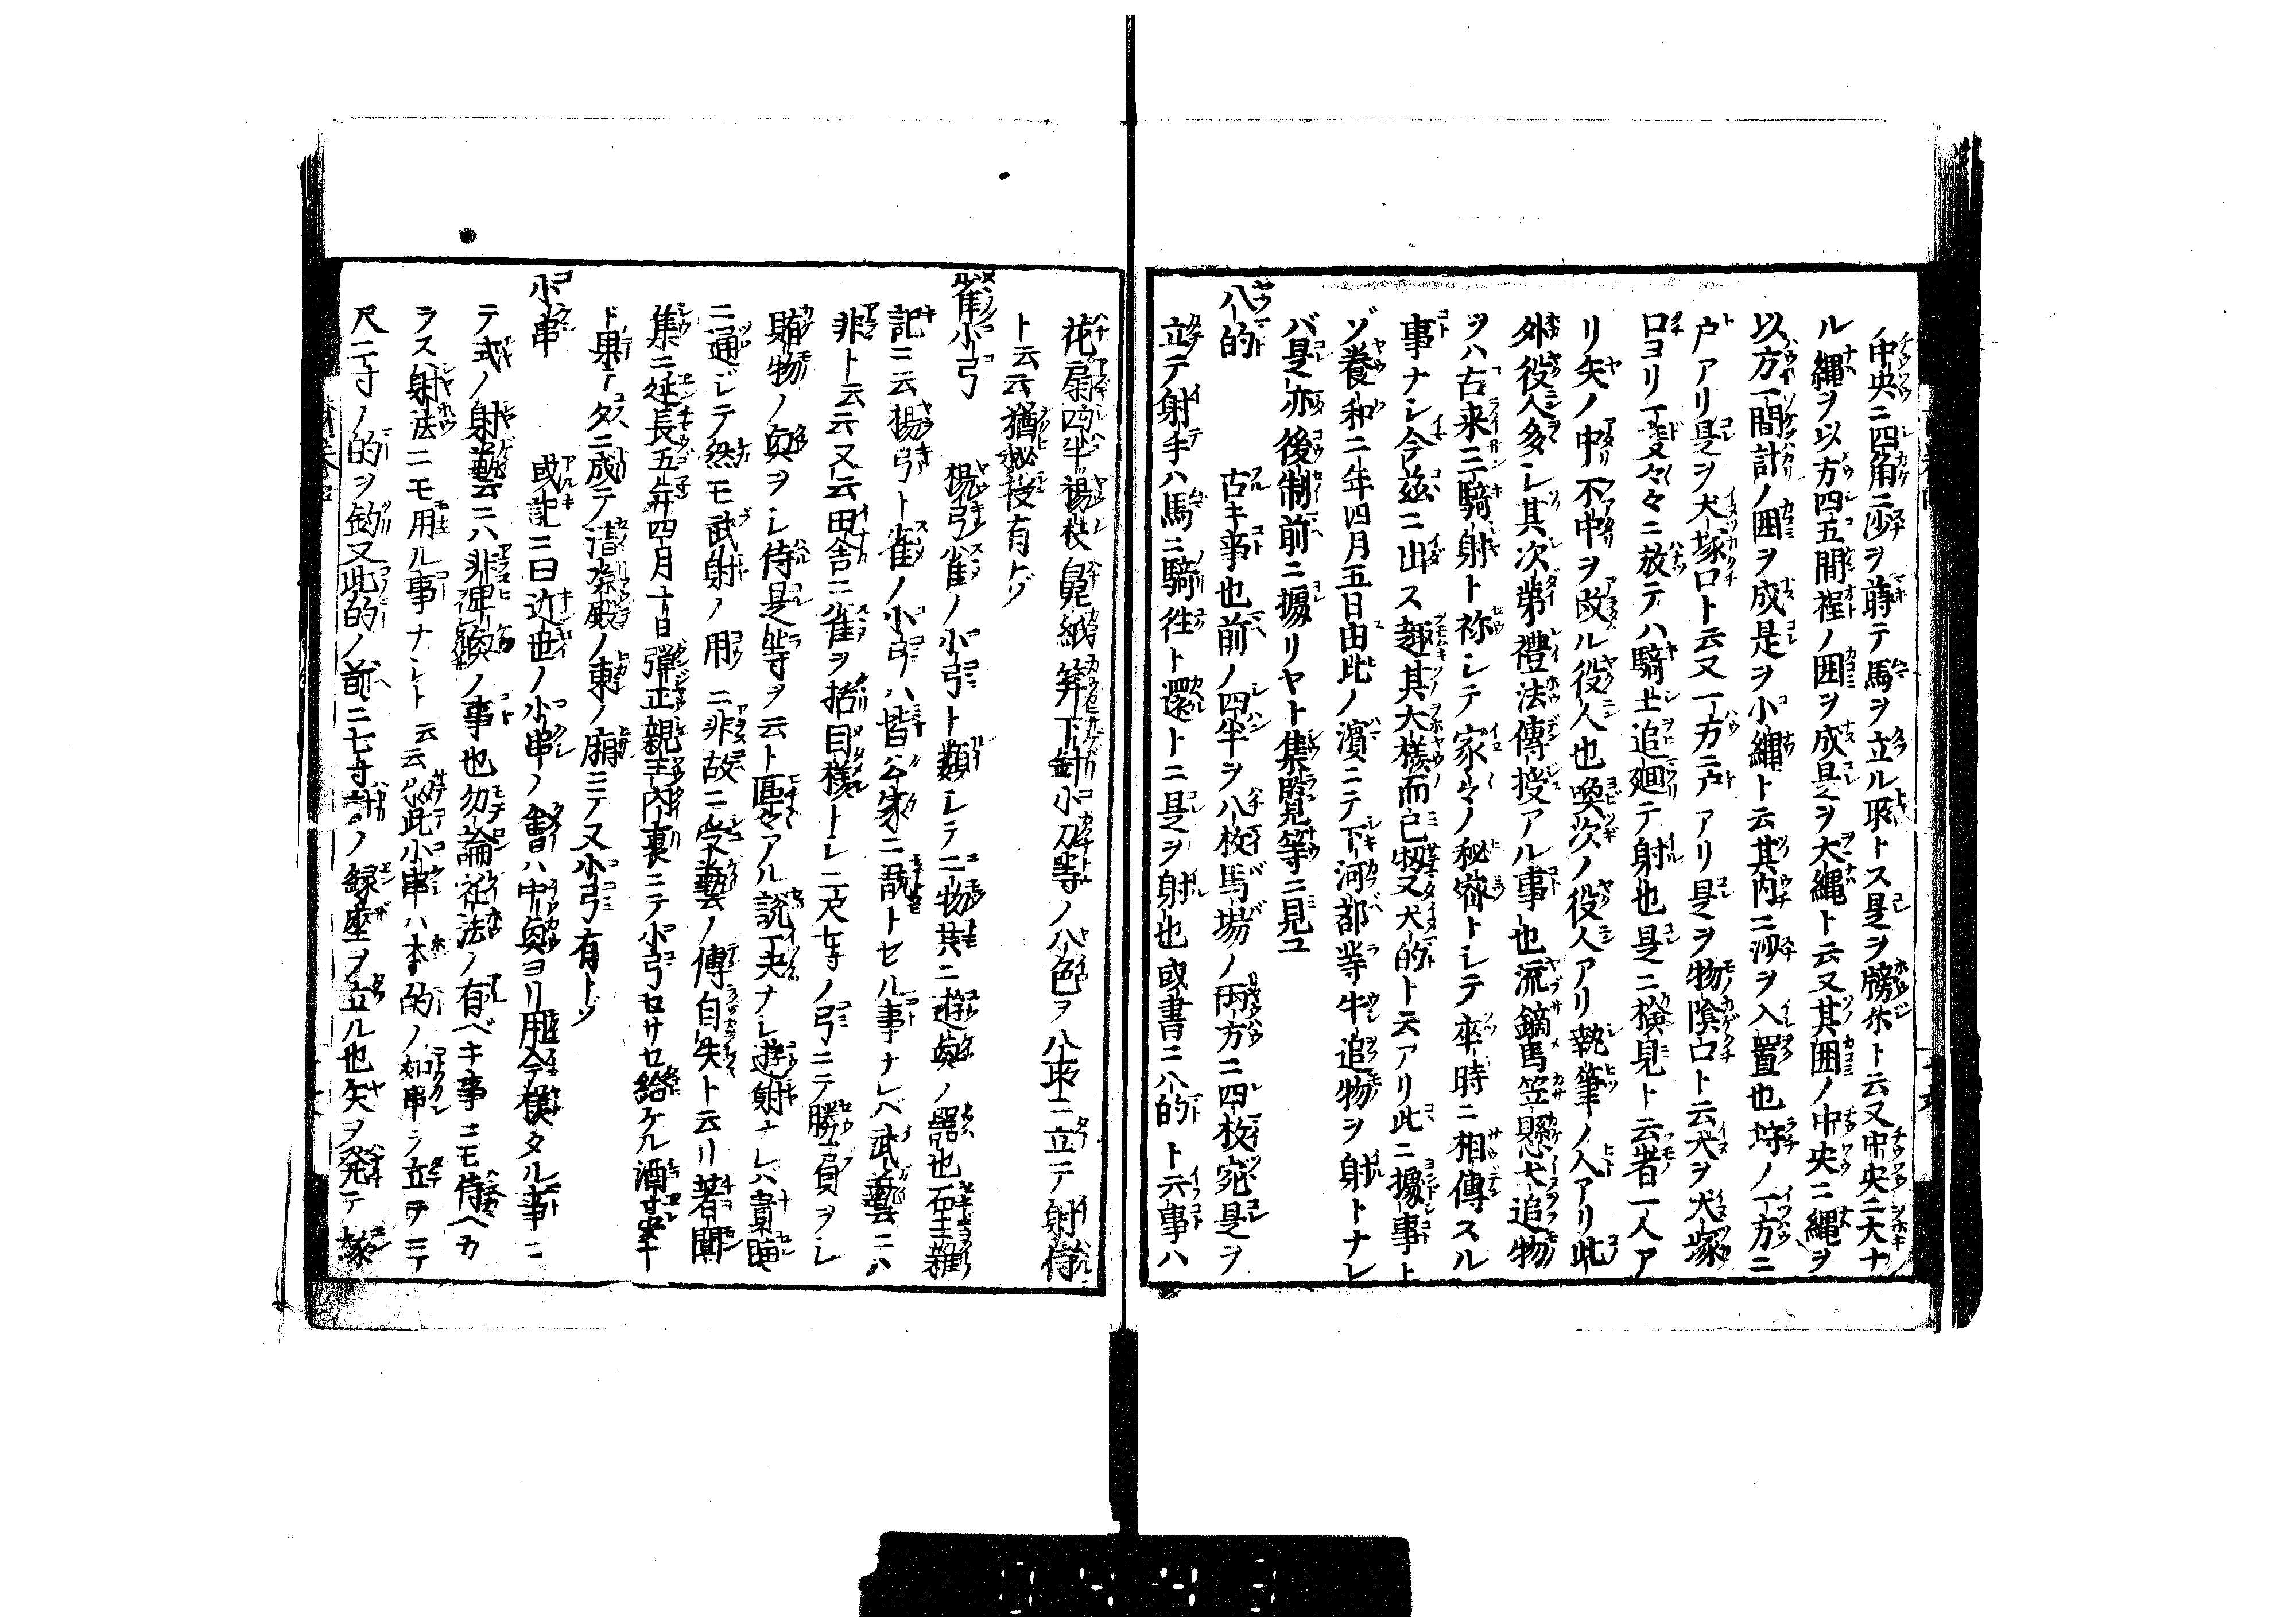 ノ中央ニ四角ニ沙ヲ蒔テ馬ヲ立ル所トス是ヲ牓尓ト云又中央ニ大ナ
ル縄ヲ以方四五間程ノ囲ヲ成是ヲ大縄ト云又其囲ノ中央ニ縄ヲ
以方一間計ノ囲ヲ成是ヲ小縄ト云其内ニ沙ヲ入置也埒ノ一方ニ
戸アリ是ヲ犬塚口ト云又一方ニ戸アリ是ヲ物陰口ト云犬ヲ犬塚
口ヨリ一疋々々ニ放テハ騎士追廻テ射也是ニ検見ト云者一人ア
リ矢ノ中不中ヲ改ル役人也喚次ノ役人アリ執筆ノ人アリ此
外役人多シ其次第禮法傳授アル事也流鏑馬笠懸犬追物
ヲハ古来三騎射ト称シテ家々ノ秘密トシテ卒時ニ相傳スル
事ナシ今茲ニ出ス趣其大様而已也又犬的ト云アリ此ニ據事ト
ゾ養和二年四月五日由比ノ濱ニテ下河部等牛追物ヲ射トナレ
バ是亦後制前ニ據リヤト集覧等ニ見ユ
八的 古キ事也前ノ四半ヲ八枚馬場ノ両方ニ四枚宛是ヲ
立テ射手ハ馬ニ騎往ト還トニ是ヲ射也或書ニ八的ト云事ハ
花扇四半楊枝鼻紙笄下針小刀等ノ八色ヲ八所ニ立テ射侍
ト云云猶秘授有トゾ
雀小弓 楊弓雀ノ小弓ト類シテ二物其ニ遊興ノ器也石圭雑
記ニ云楊弓ト雀ノ小弓ハ皆公家ニ翫トセル事ナレバ武藝ニハ
非ト云云又云田舎ニ雀ヲ括目様トシ二尺七寸ノ弓ニテ勝負ヲシ
賭物ノ興ヲシ侍是等ヲ云ト區々アル説丁夫ナレ遊射ナレバ貴賤
ニ通シテ然モ武射ノ用ニ非故ニ受藝ノ傳自失ト云リ著聞
集ニ延長五年四月十日彈正親王内裏ニテ小弓セサセ給ケル酒宴
ド果テ夕ニ成テ清凉殿ノ東ノ廂ニテ又小弓有トゾ
小串 或記ニ曰近世ノ小串ノ會ハ中興ヨリ用今様タル事ニ
テ式ノ射藝云ニハ非彈獫ノ事也勿論礼法ノ有ベキ事ニモ侍ヘカ
ラス射法ニモ用ル事ナシト云云此小串ハ本的ノ如串ヲ立テ三
尺二寸ノ的ヲ釣又此的ノ前ニ七寸計ノ縁座ヲ立ル也矢ヲ発テ縁